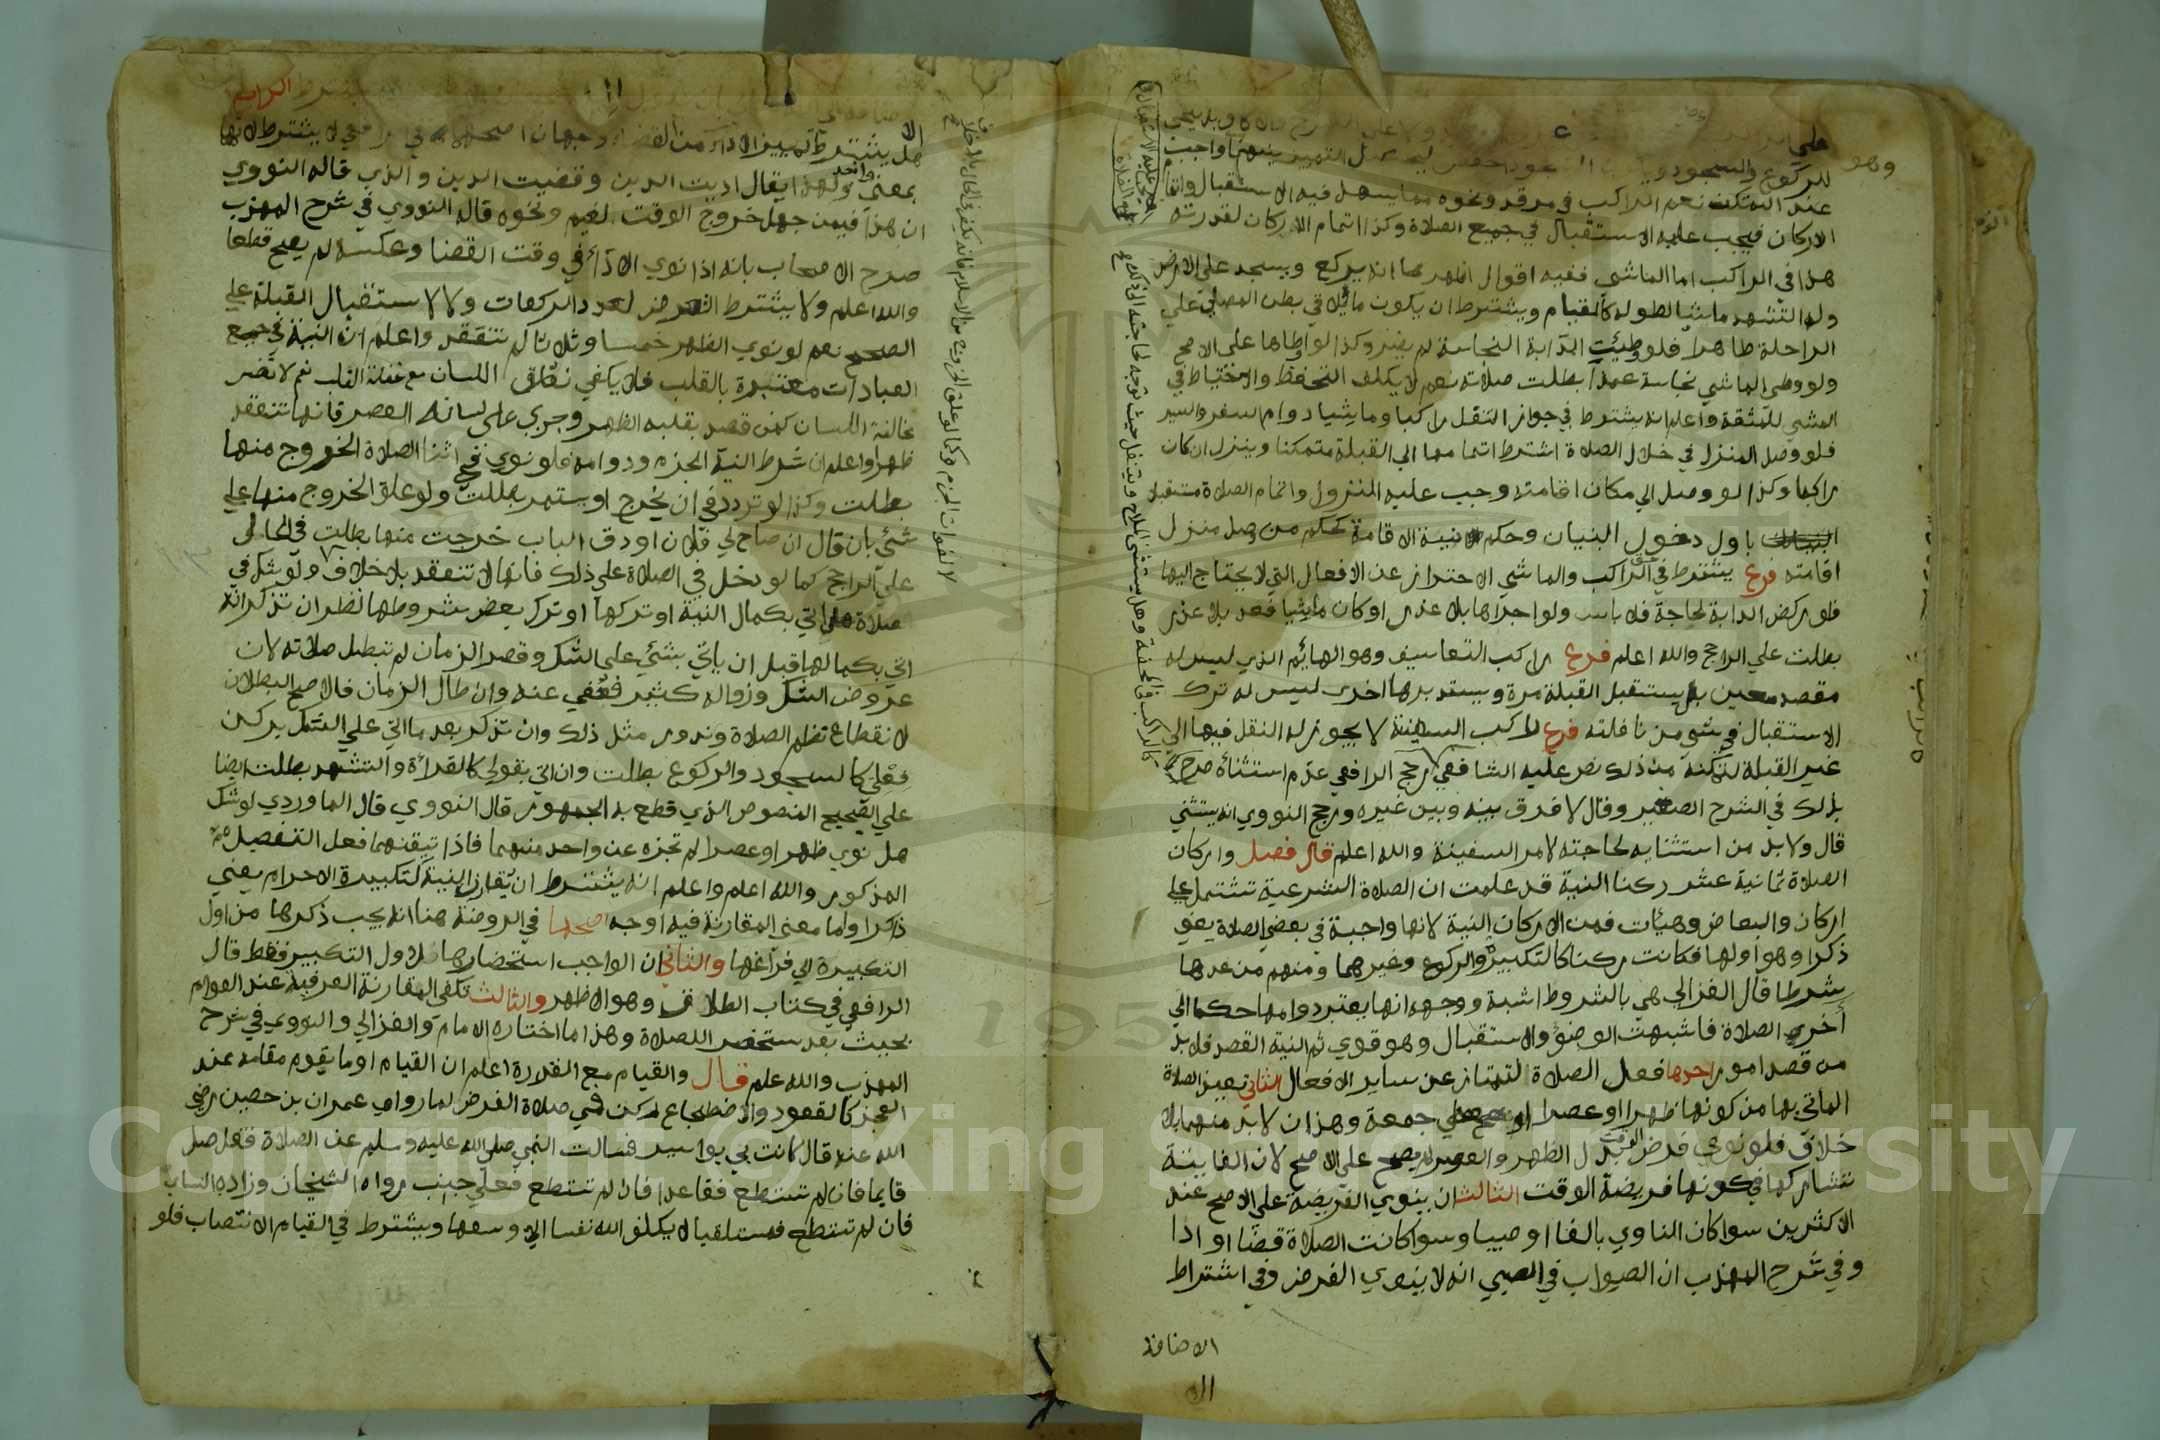 للركوع والسجود
عند التمكن نعم الراكب في مرقد ونحوه مما يسهل فيه الاستقبال واتمام
الاركان فيجب عليه الاستقبال في جميع الصلاة وكذا اتمام الاركان لقدرته
هذا في الراكب اما الماشي ففيه اقوال اظهرهما انه يركع ويسجد على الارض
وله التشهد ماشيا لطوله كالقيام ويشترط ان يكون ما يلاقي بطن المصلي علي
الراحلة طاهرا فلو وطئت الدابة النجاسة لم يضر وكذا لو اوطاها على الاصح
ولو وطي الماشي نجاسة عمدا بطلت صلاته نعم لا يكلف التحفظ والاحتياط في
المشي للمشقة واعلم انه يشترط في جواز التنفل راكبا وماشيا دوام السفر والسير
فلو وصل المنزل في خلال الصلاة اشترط اتمامها الي القبلة متمكنا وينزل ان كان
راكبا وكذا لو وصل الي مكان اقامته وجب عليه النزول واتمام الصلاة مستقبلا
باول دخول البنيان وحكم نية الاقامة كحكم من وصل منزل
اقامته فرع يشترط في حق الراكب والماشي الاحتراز عن الافعال التي لا يحتاج اليها
فلو ركض الدابة لحاجة فلا باس ولو اجراها بلا عذر او كان ماشيا فعدا بلا عذر
بطلت علي الراجح والله اعلم فرع راكب التعاسيف وهو الهائم الذي ليس له
مقصد معين بل يستقبل القبلة مرة ويستدبرها اخرى ليس له ترك
الاستقبال في شي من نافلته فرع راكب السفينة لا يجوز له التنفل فيها الي
غير القبلة لتمكنه من ذلك نص عليه الشافعي رجح الرافعي عدم استثنائه صرح
بذلك في الشرح الصغير وقال لا فرق بينه وبين غيره ورجح النووي انه يستثني
قال ولا بد من استثنائه لحاجته لامر السفينة والله اعلم قال فصل واركان
الصلاة ثمانية عشر ركنا النية قد علمت ان الصلاة الشرعية تشتمل علي
اركان وابعاض وهيئات فمن الاركان النية لانها واجبة في بعض الصلاة يعني
ذكرا وهو اولها فكانت ركنا كالتكبير والركوع وغيرهما ومنهم من عدها
شرطا قال الغزالي هي بالشروط اشبه ووجهه انها يعتبر دوامها حكما الي
اخر الصلاة فاشبهت الوضوء والاستقبال وهو قوي ثم النية القصد فلا بد
من قصد امور احدها فعل الصلاة لتمتاز عن ساير الافعال الثاني تعيين الصلاة
الماتي بها من كونها ظهرا او عصرا جمعة وهذان لا بد منهما بلا
خلاف فلو نوي فرض الوقت بدل الظهر والعصر لم يصح على الاصح لان الفايتة
تشاركها في كونها فريضة الوقت الثالث ان ينوي الفريضة على الاصح عند
الاكثرين سوا كان الناوي بالغا او صبيا وسوا كانت الصلاة قضا او ادا
وفي شرح المهذب ان الصواب في الصبي انه لا ينوي الفرض وفي اشتراط
الاضافة
١١
هل يشترط تمييز الادا من القضا وجهان اصحهما في الرافعي لا يشترط لانها
بمعنى واحد ولهذا يقال اديت الدين وقضيت الدين والذي قاله النووي
ان هذا فيمن جهل خروج الوقت لغيم ونحوه قاله النووي في شرح المهذب
صرح الاصحاب بانه اذا نوي الاداء في وقت القضا وعكسه لم يصح قطعا
والله اعلم ولا يشترط التعرض لعدد الركعات ولا لاستقبال القبلة علي
الصحيح نعم لو نوي الظهر خمسا وثلاثا لم تنعقد واعلم ان النية في جميع
العبادات معتبرة بالقلب فلا يكفي نطق اللسان مع غفلة القلب نعم لا تضر
مخالفة اللسان كمن قصد بقلبه الظهر وجري على لسانه العصر فانها تنعقد
ظهرا واعلم ان شرط النية الجزم ودوامه فلو نوي في اثنا الصلاة الخروج منها
بطلت وكذا لو تردد في ان يخرج او يستمر بطلت ولو علق الخروج منها علي
شئي بان قال ان صاح لي فلان او دق الباب خرجت منها بطلت في الحال
علي الراجح كما لو دخل في الصلاة علي ذلك فانها لا تنعقد بلا خلاف ولو شك في
صلاة هل اتي بكمال النية او تركها او ترك بعض شروطها نظر ان تذكر انه
اتي بكمالها قبل ان ياتي بشئي علي الشك وقصر الزمان لم تبطل صلاته لان
عروض الشك وزواله كثير فعفي عنه وان طال الزمان فالاصح البطلان
لانقطاع نظم الصلاة وندور مثل ذلك وان تذكر بعد ما اتي علي الشك بركن
فعلي كالسجود والركوع بطلت وان اتي بقولي كالقراءة والتشهد بطلت ايضا
علي الصحيح المنصوص الذي قطع به الجمهور قال النووي قال الماوردي لو شك
هل نوي ظهرا او عصرا لم تجزه عن واحد منهما فاذا تيقنهما فعل التفصيل
المذكور والله اعلم واعلم انه يشترط ان تقارن النية لتكبيرة الاحرام يعني
ذكرا واما معنى المقارنة فيه اوجه اصحها في الروضة هنا انه يجب ذكرها من اول
التكبيرة الي فراغها والثاني ان الواجب استحضارها لاول التكبير فقط قال
الرافعي في كتاب الطلاق وهو الاظهر والثالث تكفي المقارنة العرفية عند العوام
بحيث يعد مستحضر اللصلاة وهذا ما اختاره الامام والغزالي والنووي في شرح
المهذب والله علم قال والقيام مع القدرة اعلم ان القيام او ما يقوم مقامه عند
العجز كالقعود والاضطجاع ركن في صلاة الفرض لما روا عمران بن حصين رضي
الله عنه قال كانت بي بواسير فسالت النبي صلى الله عليه وسلم عن الصلاة فقال صل
قايما فان لم تستطع فقاعدا فان لم تستطع فعلي جنب رواه الشيخان وزاده النساي
فان لم تستطع فمستلقيا لا يكلف الله نفسا الا وسعها ويشترط في القيام الانتصاب فلو